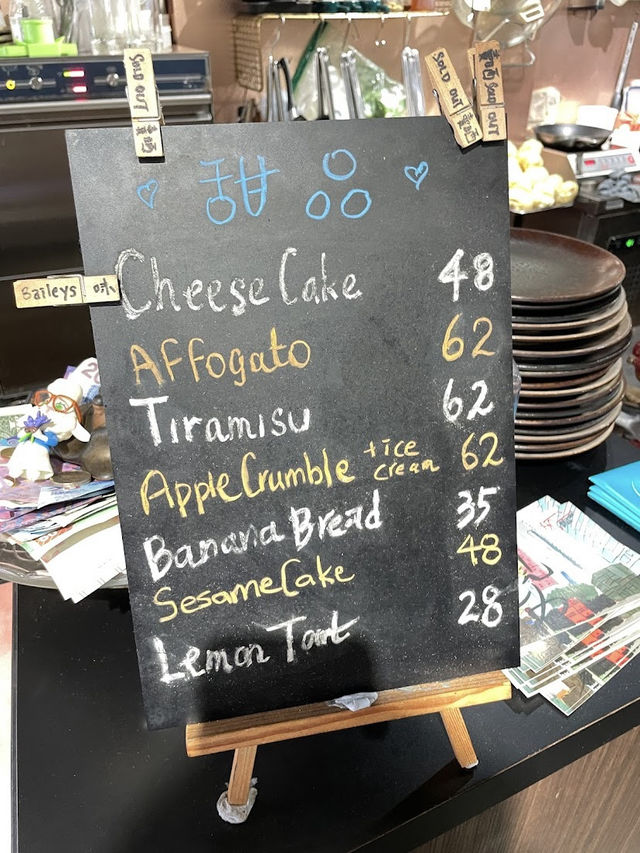 SOLD OUT 售罄
SOLD OUT
售罄 SOLD OUT
甜品
Baileys 味
Cheese Cake 48
Affogato 62
Tiramisu 62
Apple Crumble + ice cream 62
Banana Bread 35
Sesame Cake 48
Lemon Tart 28